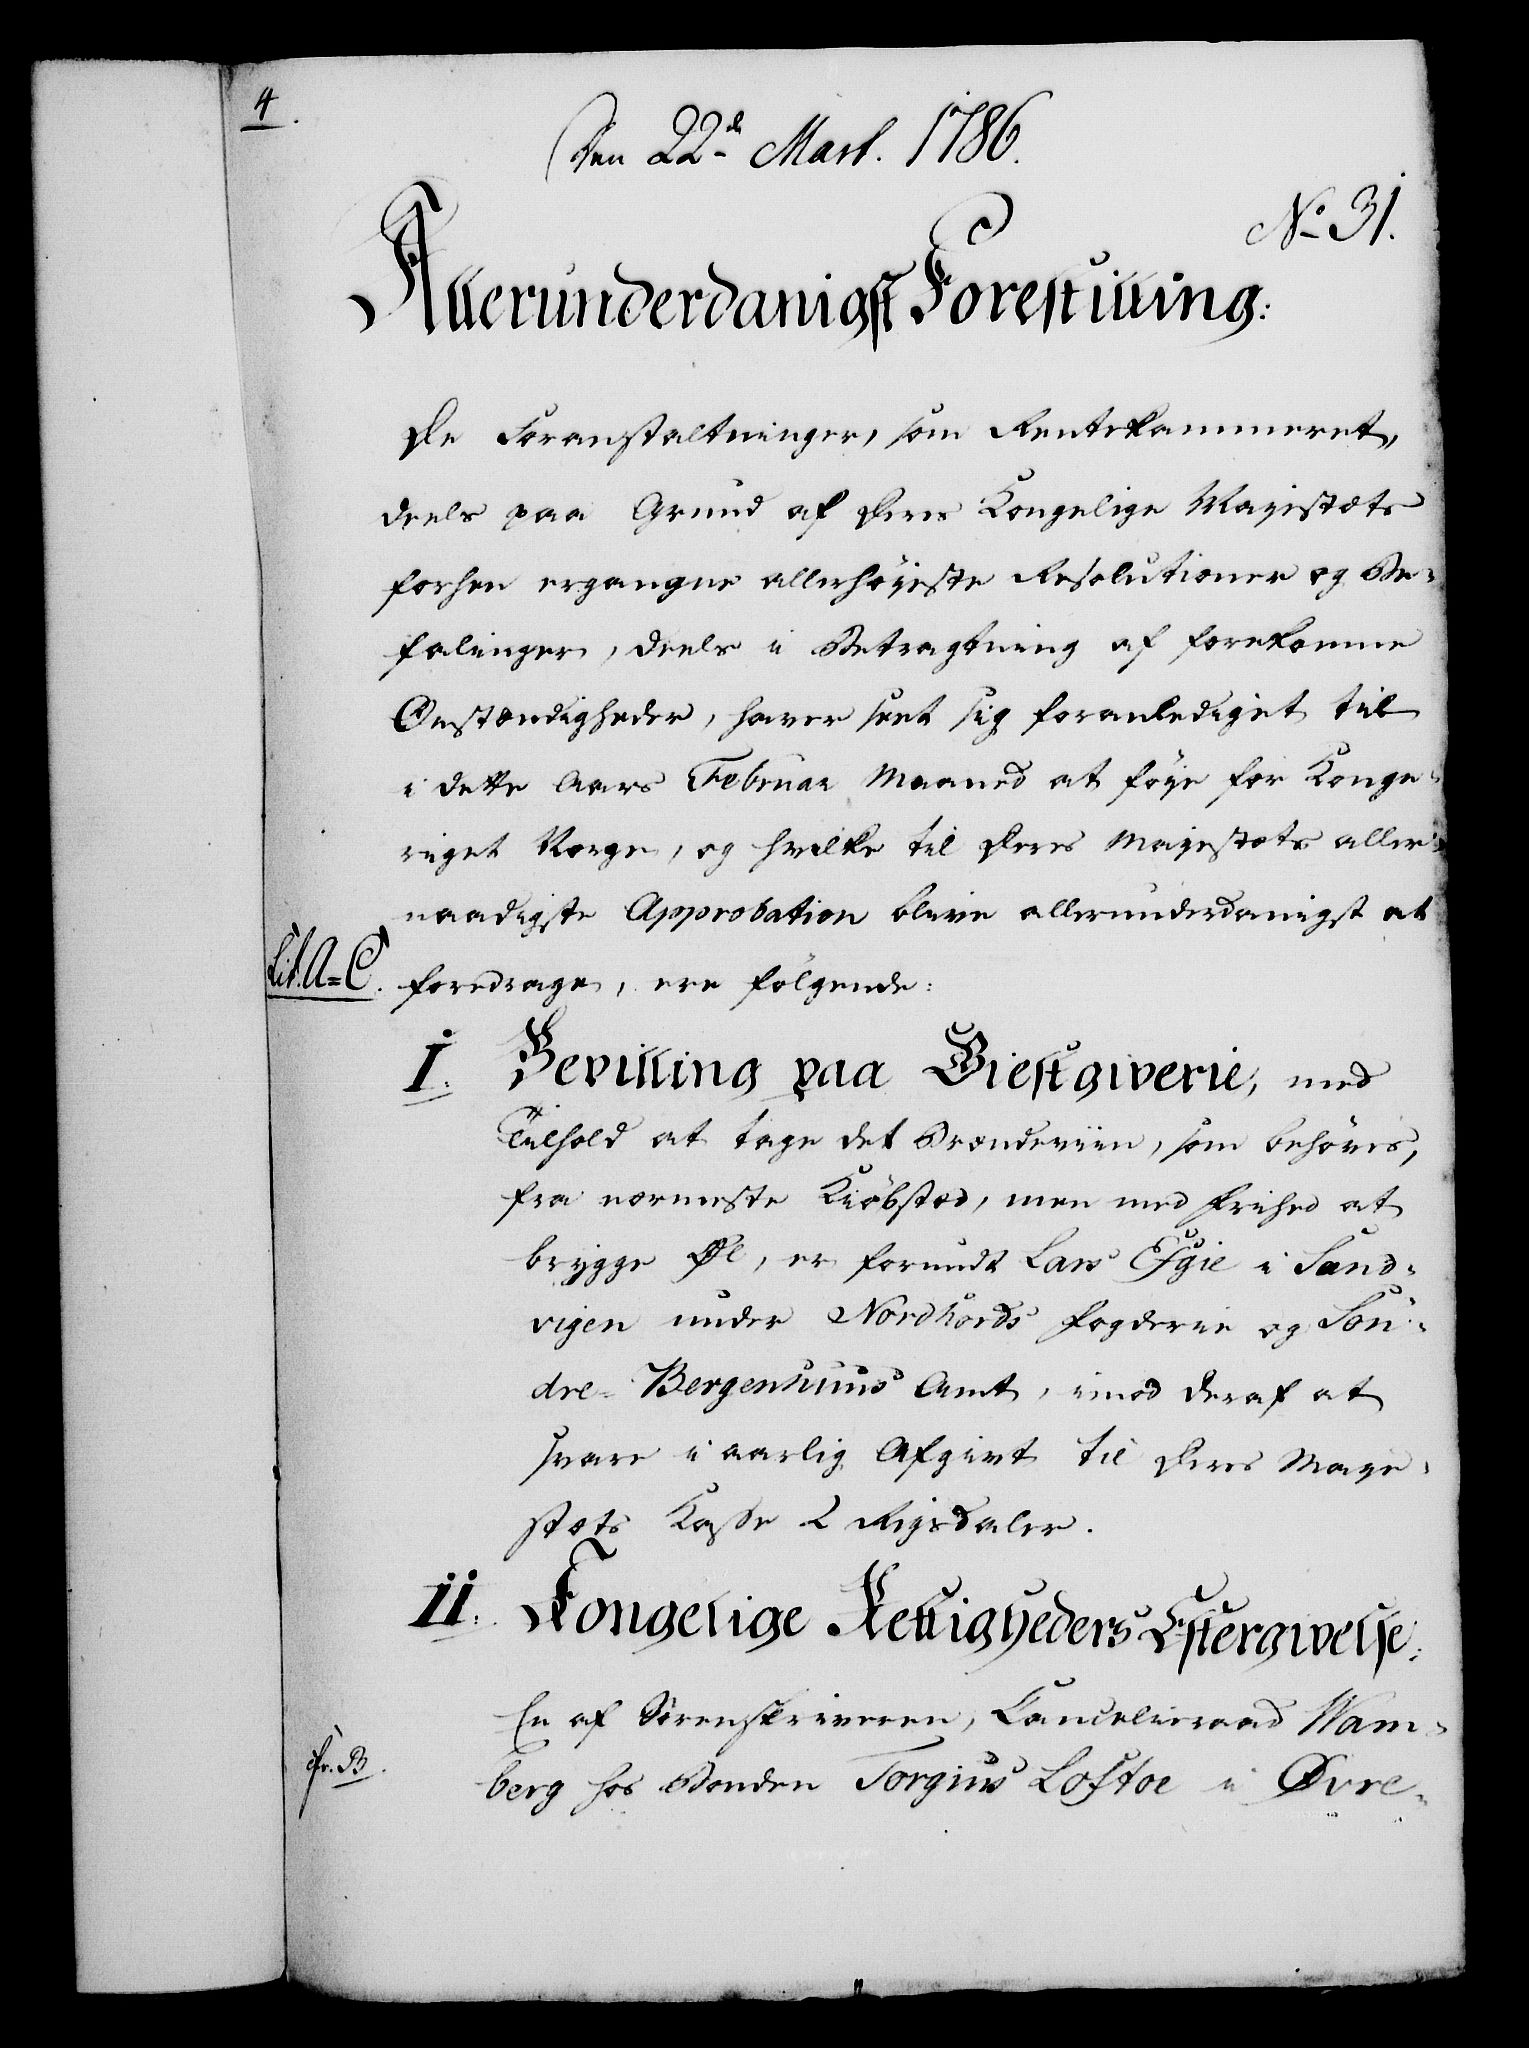 4.
Den 22de Mart. 1786.
No 31.
Allerunderdanigst Forestilling:
De Foranstaltninger, som Rentekammeret,
deels paa Grund af Deres Kongelige Mayestæts
forhen ergangne allerhöyeste Resolutioner og Be=
falinger, deels i Betragtning af forekomne
Omstændigheder, haver seet sig foranlediget til
i dette Aars Februar Maaned at föye for Konge=
riget Norge, og hvilke til Deres Mayestæts aller=
naadigste Approbation blive allerunderdanigst at
Lit. A=C. foredrage, ere fölgende:
I. Bevilling paa Giestgiverie, med
Tilhold at tage det Brændeviin, som behöves,
fra nærmeste Kiöbstæd, men med Frihed at
brygge Øl, er forundt Lars Efgie i Sand=
vigen under Nordhords Fogderie og Sön=
dre= Bergenhuus Amt, imod deraf at
svare i aarlig Afgivt til Deres Maye=
stæts Kasse 2 Rigsdaler.
II. Kongelige Rettigheders Eftergivelse:
En af Sorenskriveren, Cancelieraad Wam=
cfr. B. berg hos Bonden Torgius Loftoe i Øvre=